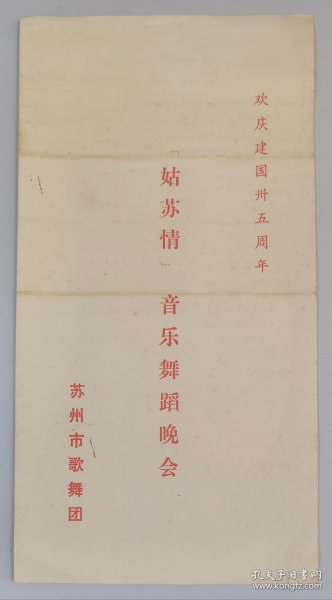 欢庆建国卅五周年
「姑苏情」音乐舞蹈晚会
苏州市歌舞团
孔夫子旧书网
www.kongfz.com